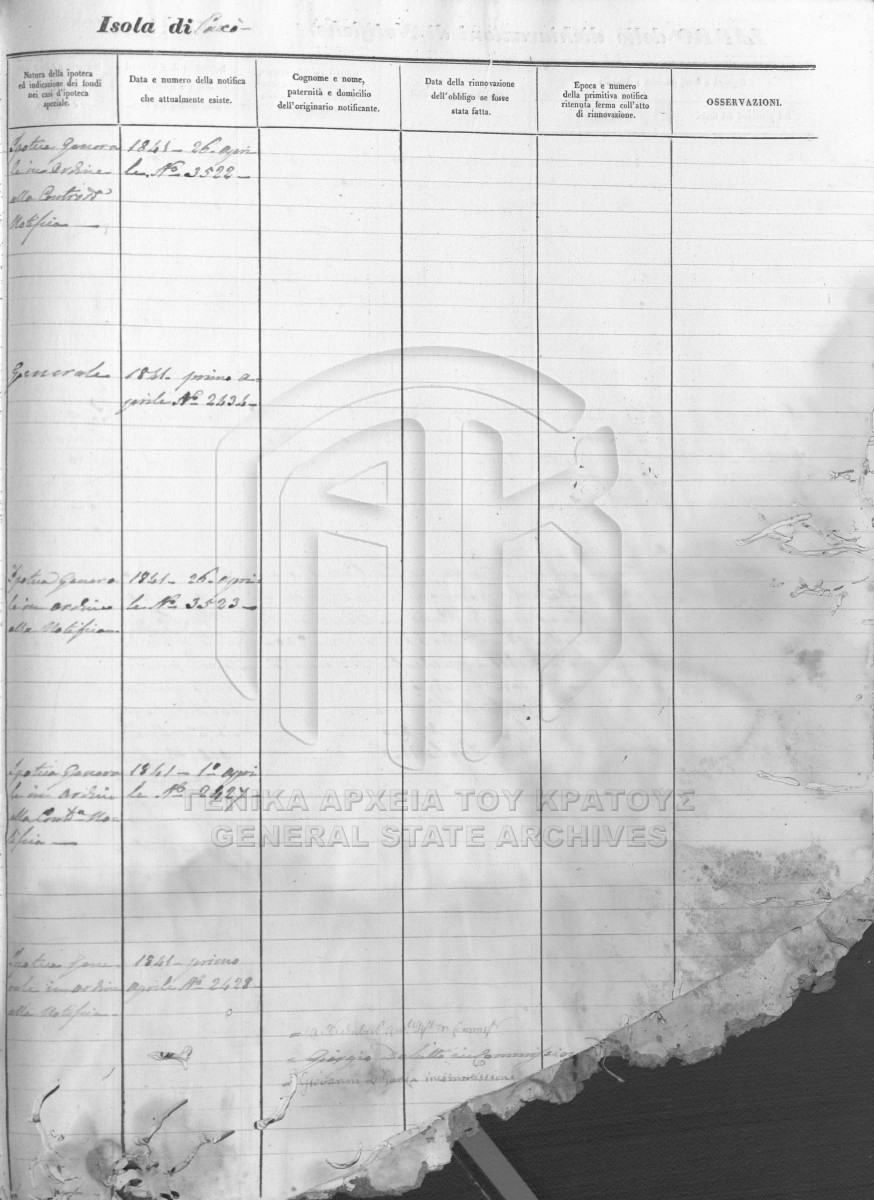 Isola di Paxò
Natura della ipoteca
ed indicazione dei fondi
nei casi d'ipoteca
speciale.
Data e numero della notifica
che attualmente esiste.
Cognome e nome,
paternità e domicilio
dell'originario notificante.
Data della rinnovazione
dell'obbligo se fosse
stata fatta.
Epoca e numero
della primitiva notifica
ritenuta ferma coll'atto
di rinnovazione.
OSSERVAZIONI.
Ipoteca Genera
le in ordine
alla
Notifica
1841 - 26. apri
le. No 3522
Generale
1841 - primo a-
prile No 2434
Ipoteca Genera
le in ordine
alla Notifica
1841 - 26. apri
le No 3523
Ipoteca Genera
le in ordine
alla No-
tifica
1841 - 1o apri
le No 2427
ΓΕΝΙΚΑ ΑΡΧΕΙΑ ΤΟΥ ΚΡΑΤΟΥΣ
GENERAL STATE ARCHIVES
Ipoteca Gene-
rale in ordine
alla Notifica
1841 - primo
aprile No 2428
Giorgio
Giovanni